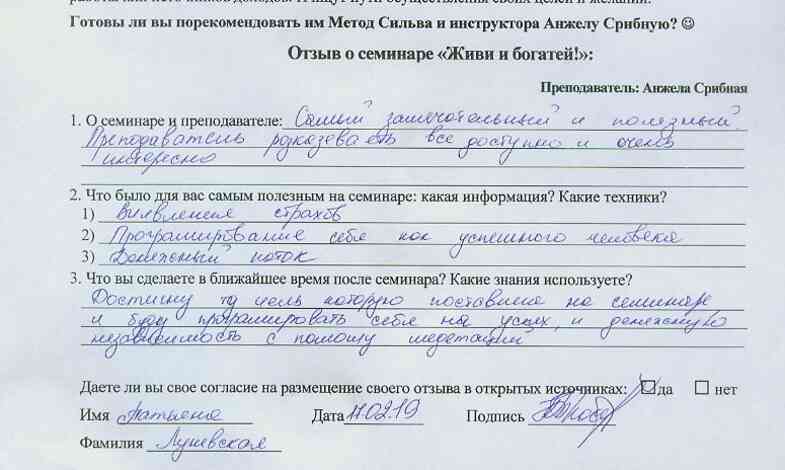 работы или источников доходов. И ищут пути осуществления своих целей и желаний.
Готовы ли вы порекомендовать им Метод Сильва и инструктора Анжелу Срибную? ☺
Отзыв о семинаре «Живи и богатей!»:
Преподаватель: Анжела Срибная
1. О семинаре и преподавателе: Самый замечательный и полезный.
Преподаватель розказевает все доступно и очень
интересно
2. Что было для вас самым полезным на семинаре: какая информация? Какие техники?
1) Виявления страхов
2) Програмирование себя как успешного человека
3) Денежный поток
3. Что вы сделаете в ближайшее время после семинара? Какие знания используете?
Достигну ту цель которую поставила на семинаре
и буду програмировать себя на успех, и денежную
независимость с помощу медетаций
Даете ли вы свое согласие на размещение своего отзыва в открытых источниках: ☑ да ☐ нет
Имя Татьяна Дата 17.02.19 Подпись
Фамилия Лушевская